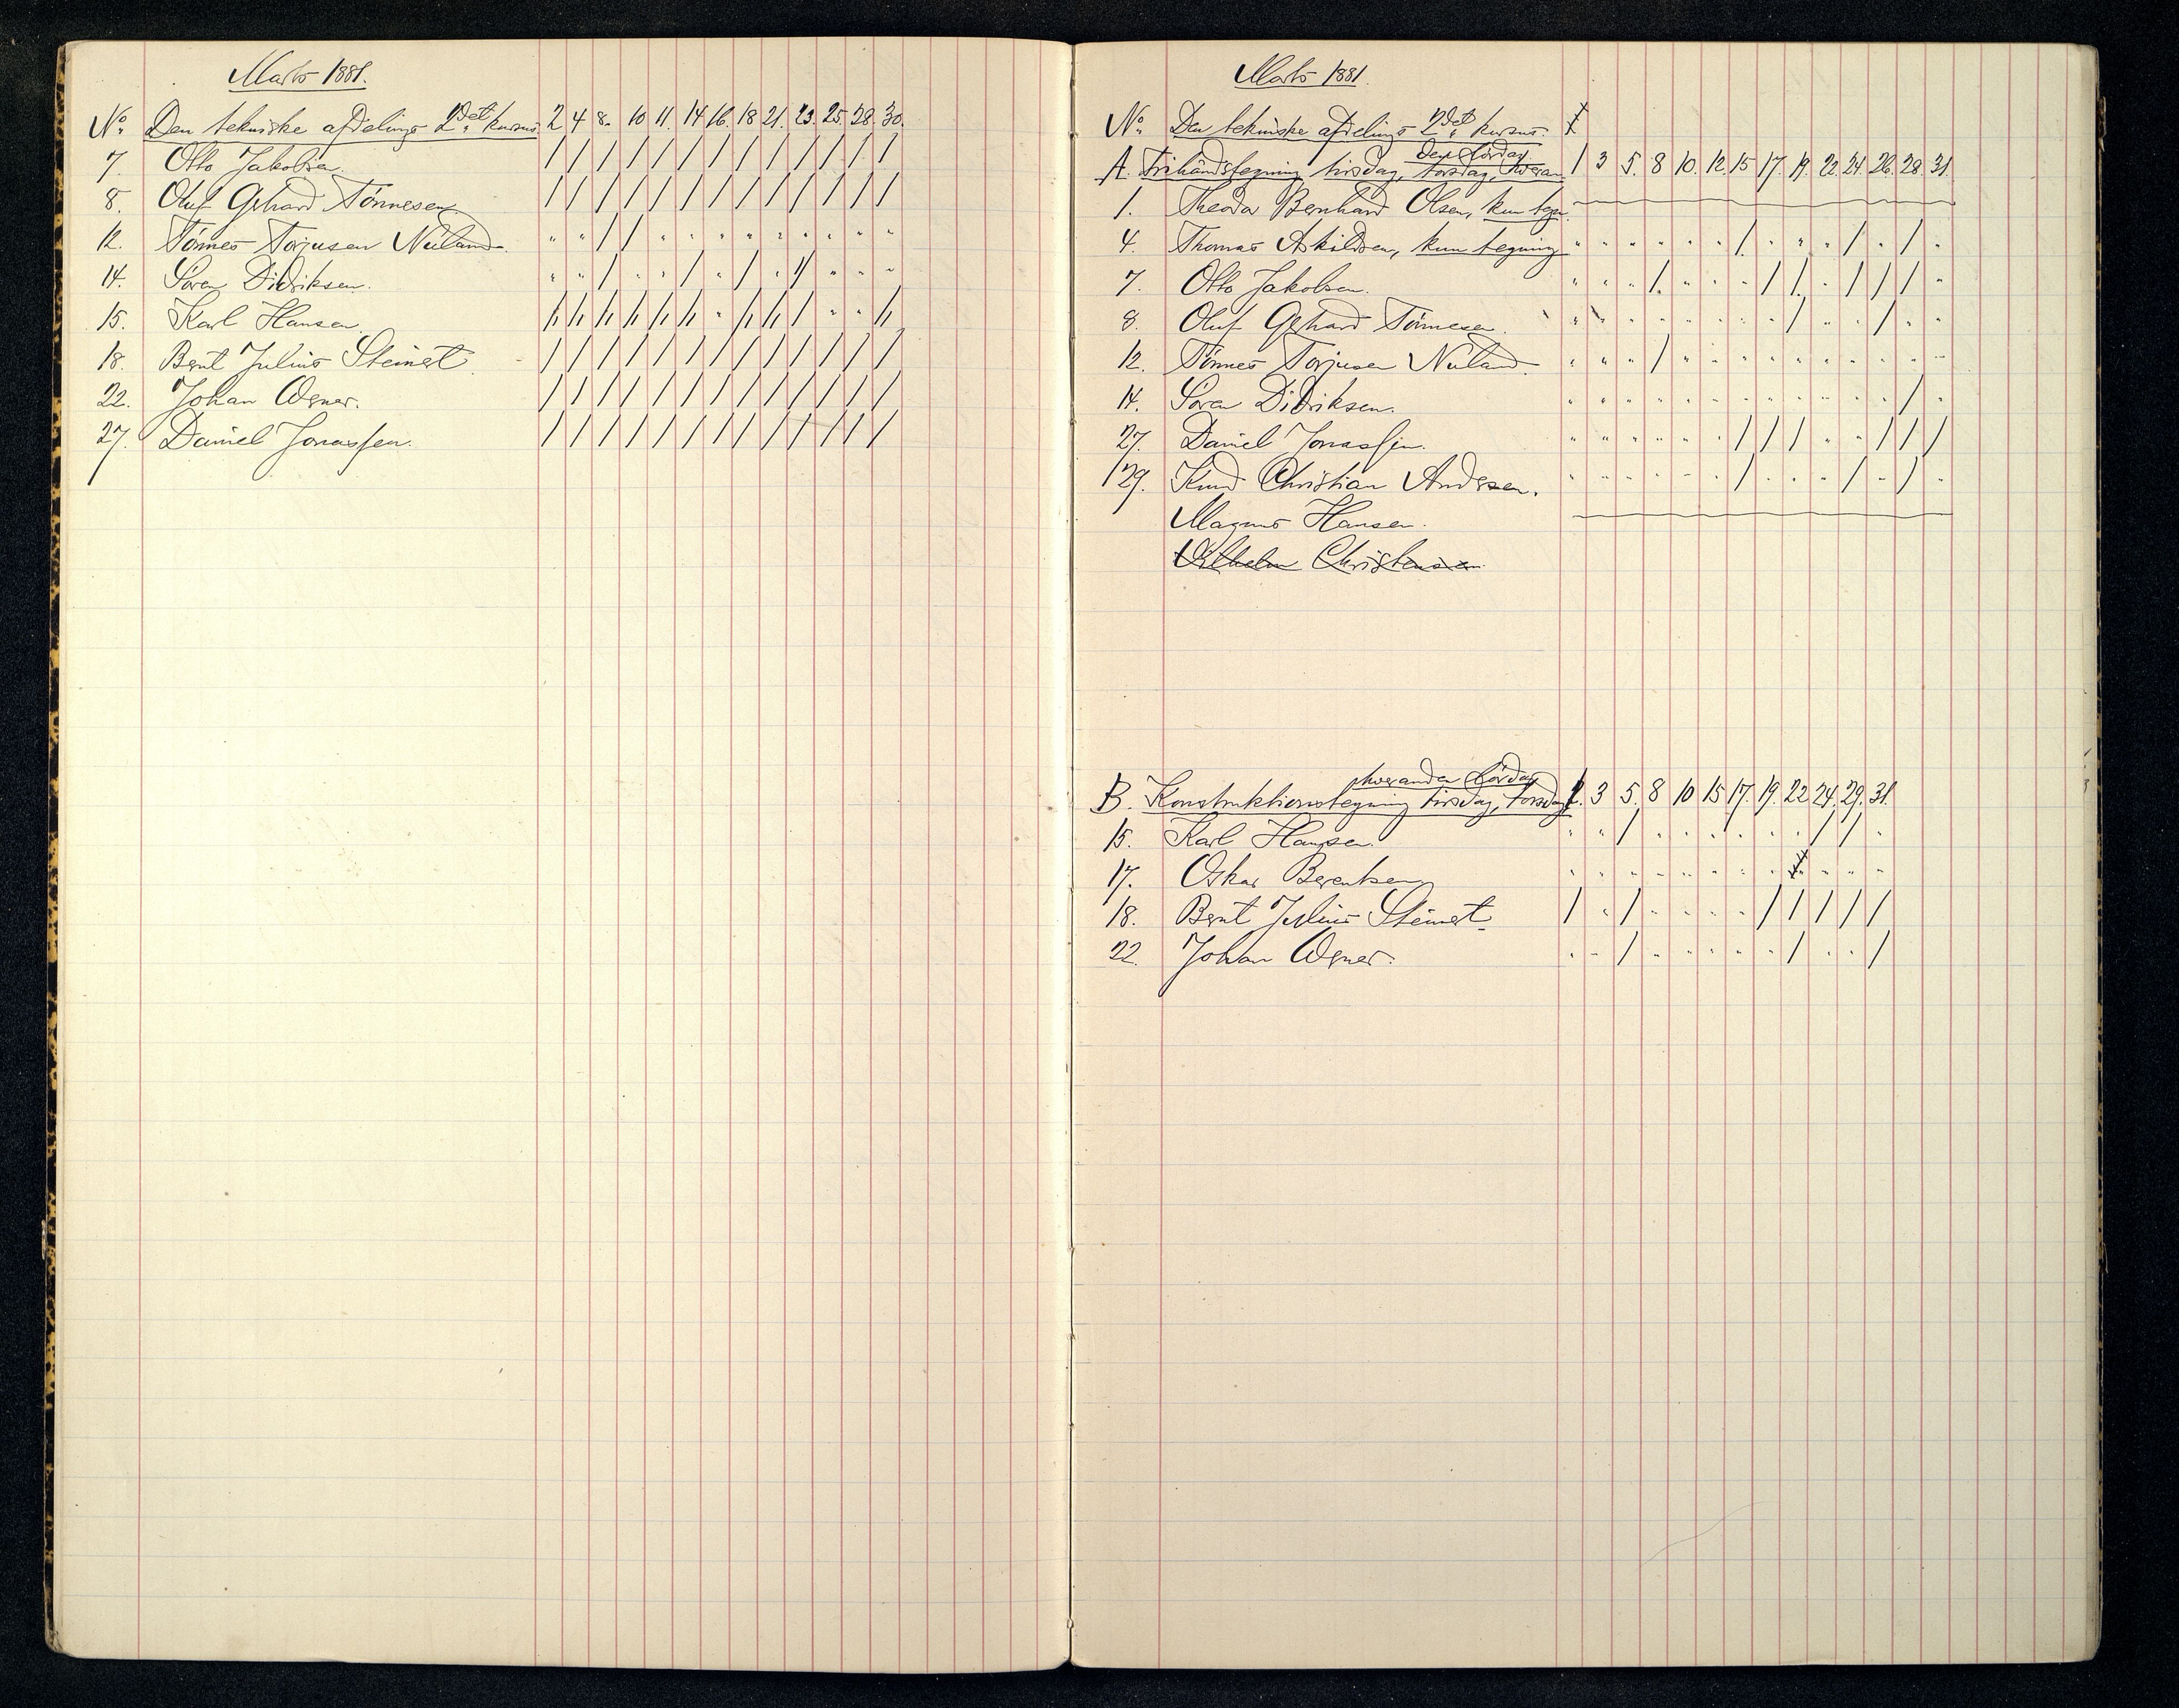 Marts 1881.
No. Den tekniske afdelings 2det kursus 2 4 8. 10 11. 14 16. 18 21. 23. 25. 28. 30.
7. Otto Jakobsen. / / / / / / / / / / / / /
8. Oluf Gerhard Tönnesen. / / / / / / / / / / / / /
12. Tönnes Torjusen Nuland. " " / / " " " " " " " " "
14. Sören Didriksen. " " / " " / " / " / " " "
15. Karl Hansen.
18. Bent Julius Steinert. / / / / / / / / / / / / /
22. Johan Wgner. / / / / / / / / / / / / /
27. Daniel Jonassen. / / / / / / / / / / / / /
Marts 1881.
No. Den tekniske afdelings 2det kursus.
A. Frihåndstegning tirsdag, torsdag, hveranden lördag 1 3 5. 8 10. 12. 15 17. 19. 22. 24. 26. 28. 31.
1. Theodor Bernhard Olsen, kun tegn.
4. Thomas Askildsen, kun tegning " " " " " " / " " " / " / "
7. Otto Jakobsen. " " " / " " " / / " / / / "
8. Oluf Gerhard Tönnesen. " " " " " " " " / " " / " "
12. Tönnes Torjusen Nuland. " " " / " " " " " " " " " "
14. Sören Didriksen. " " " " " " " " " " " " / "
27. Daniel Jonassen. " " " " " " / / / " " / / /
29. Knud Christian Andersen. " " " " " " / " " " / " / "
Magnus Hansen.
Vilhelm Christensen.
hveranden lördag
B. Konstruktionstegning tirsdag, torsdag 1. 3 5. 8 10 15 17. 19. 22 24. 29. 31.
15. Karl Hansen. " " / " " " " " " / / "
17. Oskar Berentsen " " " " " " " " " " " "
18. Bent Julius Steinert. / " / " " " " / / / / /
22. Johan Wgner. " " / " " " " " / " " /